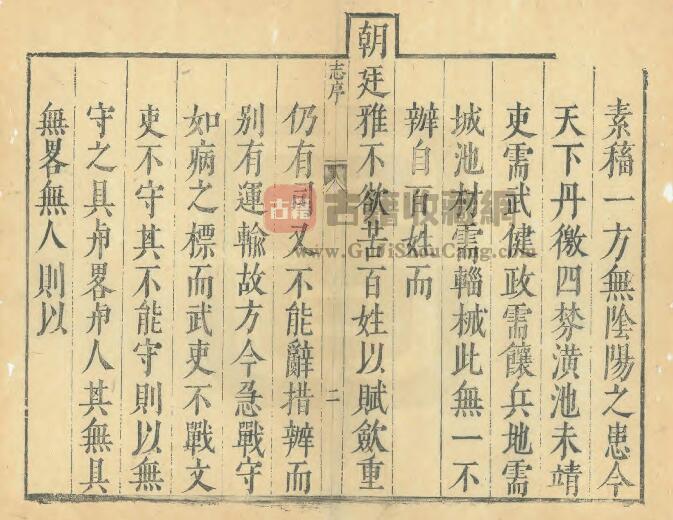 素穡一方無陰陽之患今
天下丹徼四棼潢池未靖
吏需武健政需饟兵地需
城池材需輜械此無一不
辦自百姓而
朝廷雅不欲苦百姓以賦歛重
志序
二
仍有司又不能辭措辦而
别有運輸故方今急戰守
如病之標而武吏不戰文
吏不守其不能守則以無
守之具畧人其無具
無畧無人則以
古籍
古籍收藏網
www.GuJiShouCang.com